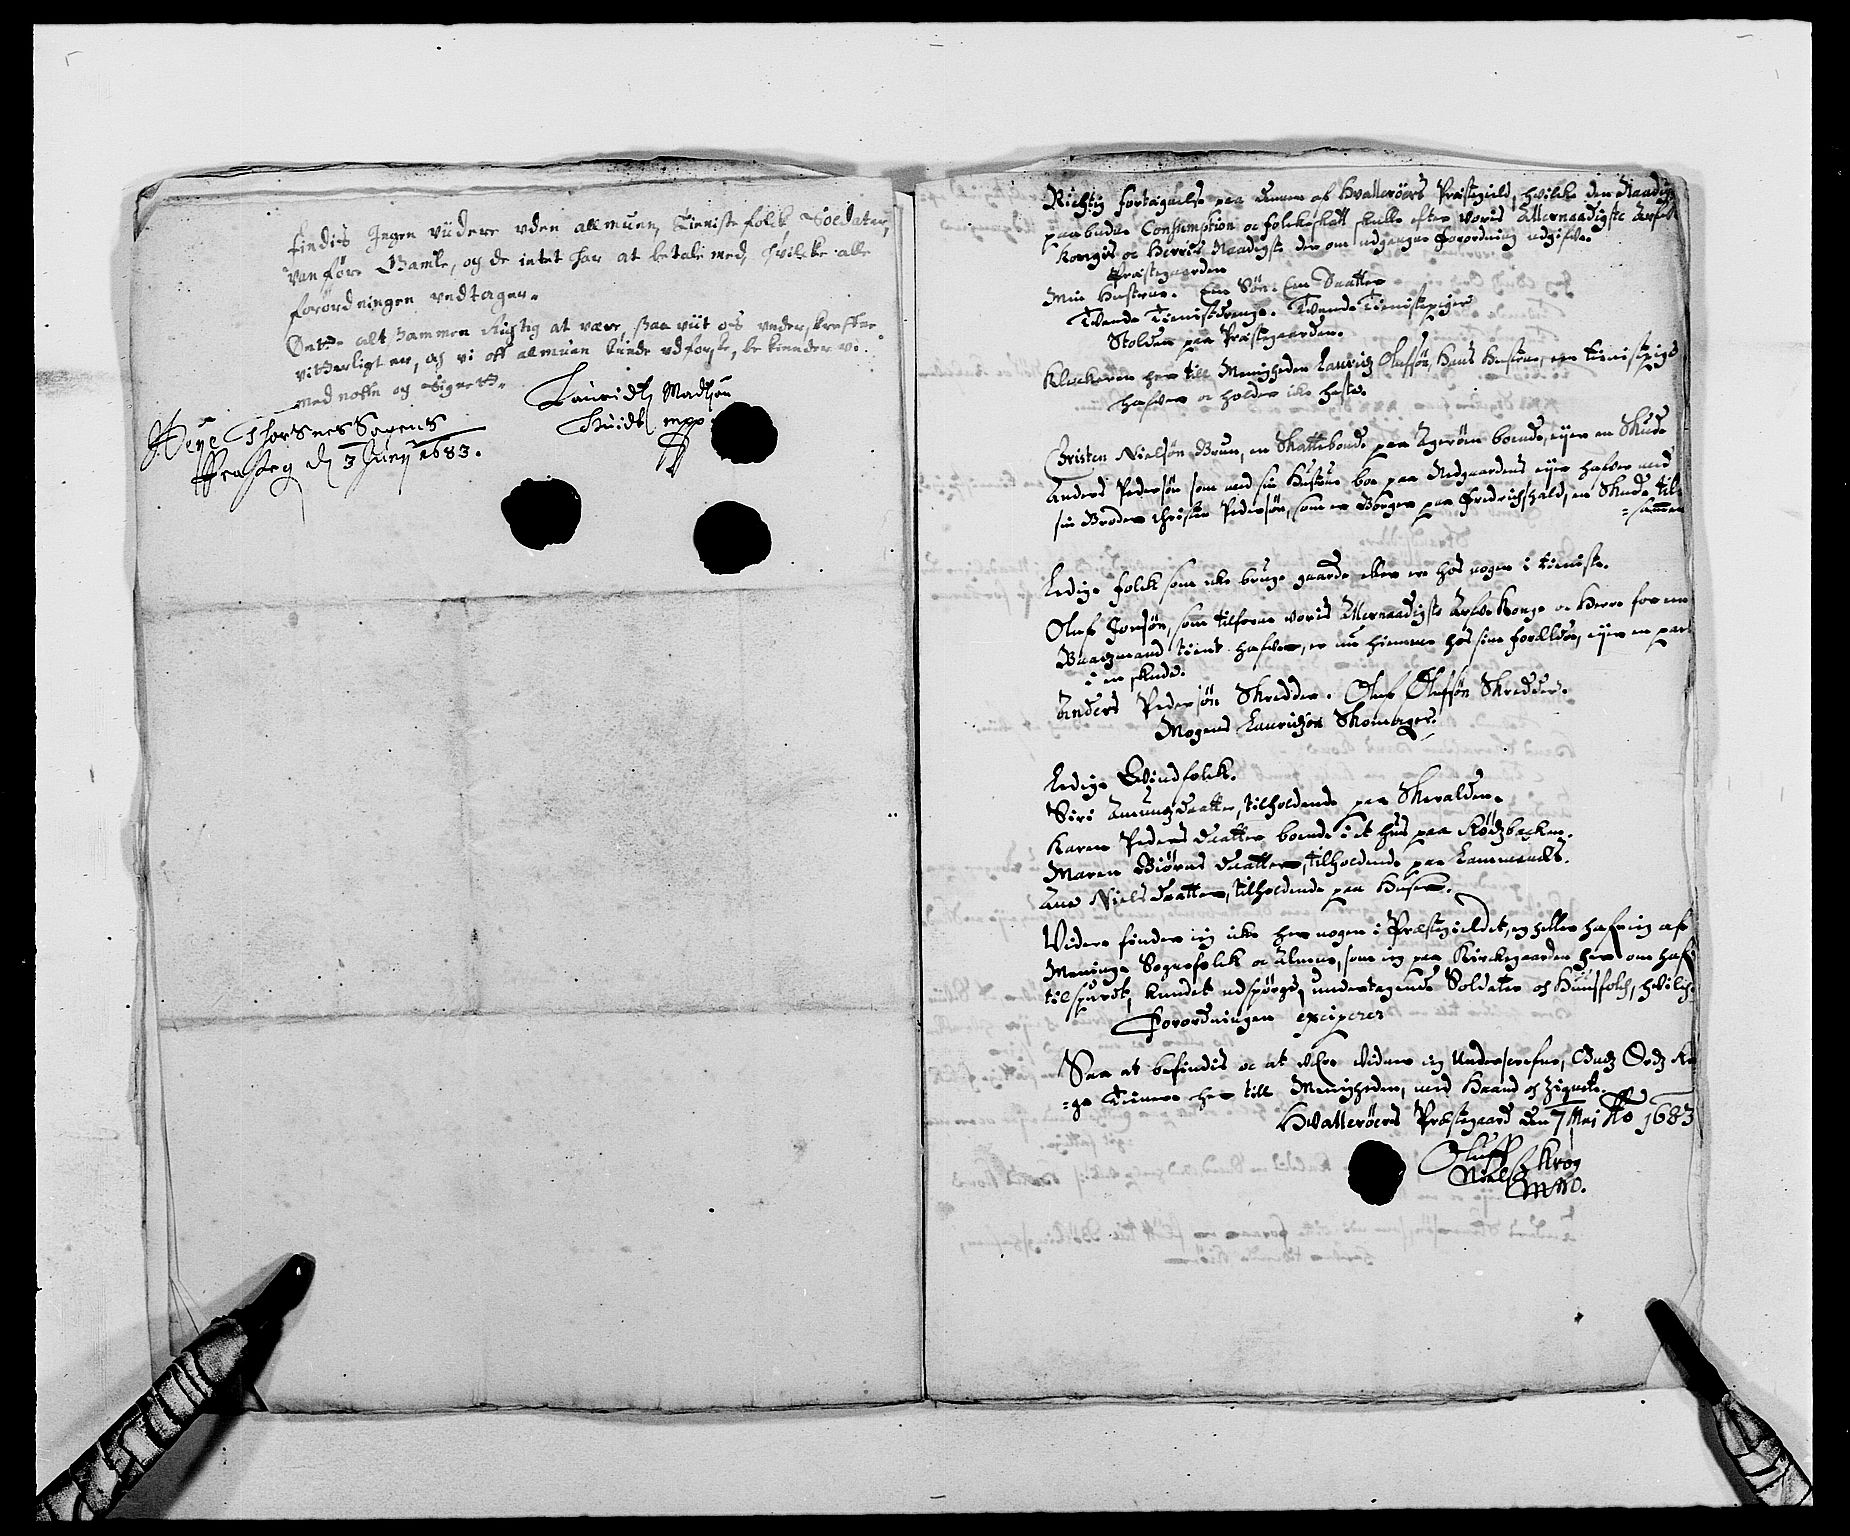 findis Ingen viidere uden allmuen, Tieniste folck, Soldater,
van føre Gamle, og de intet har at betale med, hvilcke alle
forordningen undtager.
alt sammen Rigtig at være, saa viit os underskreffne
vitterligt er, og vi aff allmuen kunde udforske, bekiender vi
med noffn og Signeter.
Lauridtz Madtzen
mpp
d 3 Junij 1683.
Richtig fortegnelse paa dennem af Hvallerøers Præstegield, hvilke den Naadigst
paabudne Consumption oc folkeskatt skulle efter voris Allernaadigste Arfve
Kongis oc Herris Naadigste der om udgangne Forordning udgifve.
Præstegaarden
Min Hustrue. Een Søn. Een Daatter
Tvende Tienistdrenge. Tvende Tienistepiger
Stolden paa Præstegaarden.
Kluckeren her till Menigheden Lauritz Olufsøn, Hans Hustrue, een tienistepige
hafver oc holder ike heste.
Christen Nielsøn Brun, en Skattebonde paa Agerøen boende, eyer en Skude
Anders Pedersøn som med sin Hustrue boe paa Nedgaarden eyer hafver med
sin Broder Christen Pedersøn, som er Borger paa Fredrichshald, en Skude til-
=sammen
Ledige folck som ike bruge gaarde eller ere hos nogen i tieniste.
Oluf Jonsøn, som tilforne voris Allernaadigste Arfve Konge oc Herre for en
Baadzmand tient hafver, er nu hiemme hos sine forældre, eyer en part
i en skude.
Anders Pedersøn Skredder. Oluf Olufsøn Skredder.
Mogens Lauritzøn Skomager.
Ledige Qvindfolck.
Siri Amundz daatter, tilholdende paa Skeralden.
Karen Peders daatter boende i et hus paa Rødzbacken.
Maren Biørns daatter, tilholdende paa
Ane Niels daatter, tilholdende paa Huser.
Videre finder ieg icke her nogen i Præstegieldet, ey heller haf ieg af
Menige Sognefolck oc Almue, som ieg paa Kirckegaarden her om haf
tilspurdt, kundet udspørge, undertagende Soldater och Huusfolch, hvilche
Forordningen exciperer
Saa at befindis oc at være vidner ieg Underscrefne, Gudz Ordz
=ge Tienere her till Menigheden, med Haand och Zignete.
Hvallerøers Præstegaard den 7 Maj Ao 1683
Oluff
Nielsz Krog
Mpp.